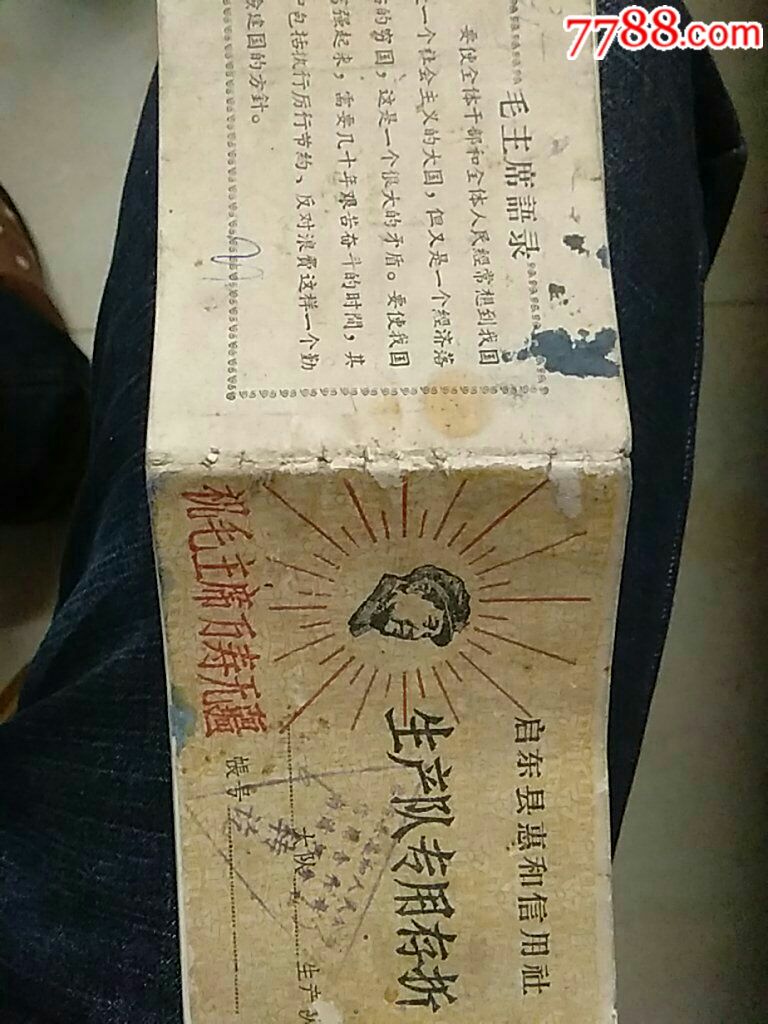 7788.com
毛主席語录
要使全体干部和全体人民經常想到我国
是一个社会主义的大国,但又是一个經济落
的穷国,这是一个很大的矛盾。要使我国
富强起来,需要几十年艰苦奋斗的时間,其
中包括执行厉行节約、反对浪費这样一个勤
儉建国的方針。
启东县惠和信用社
生产队专用存折
祝毛主席万寿无疆
大队
生产队
帳号